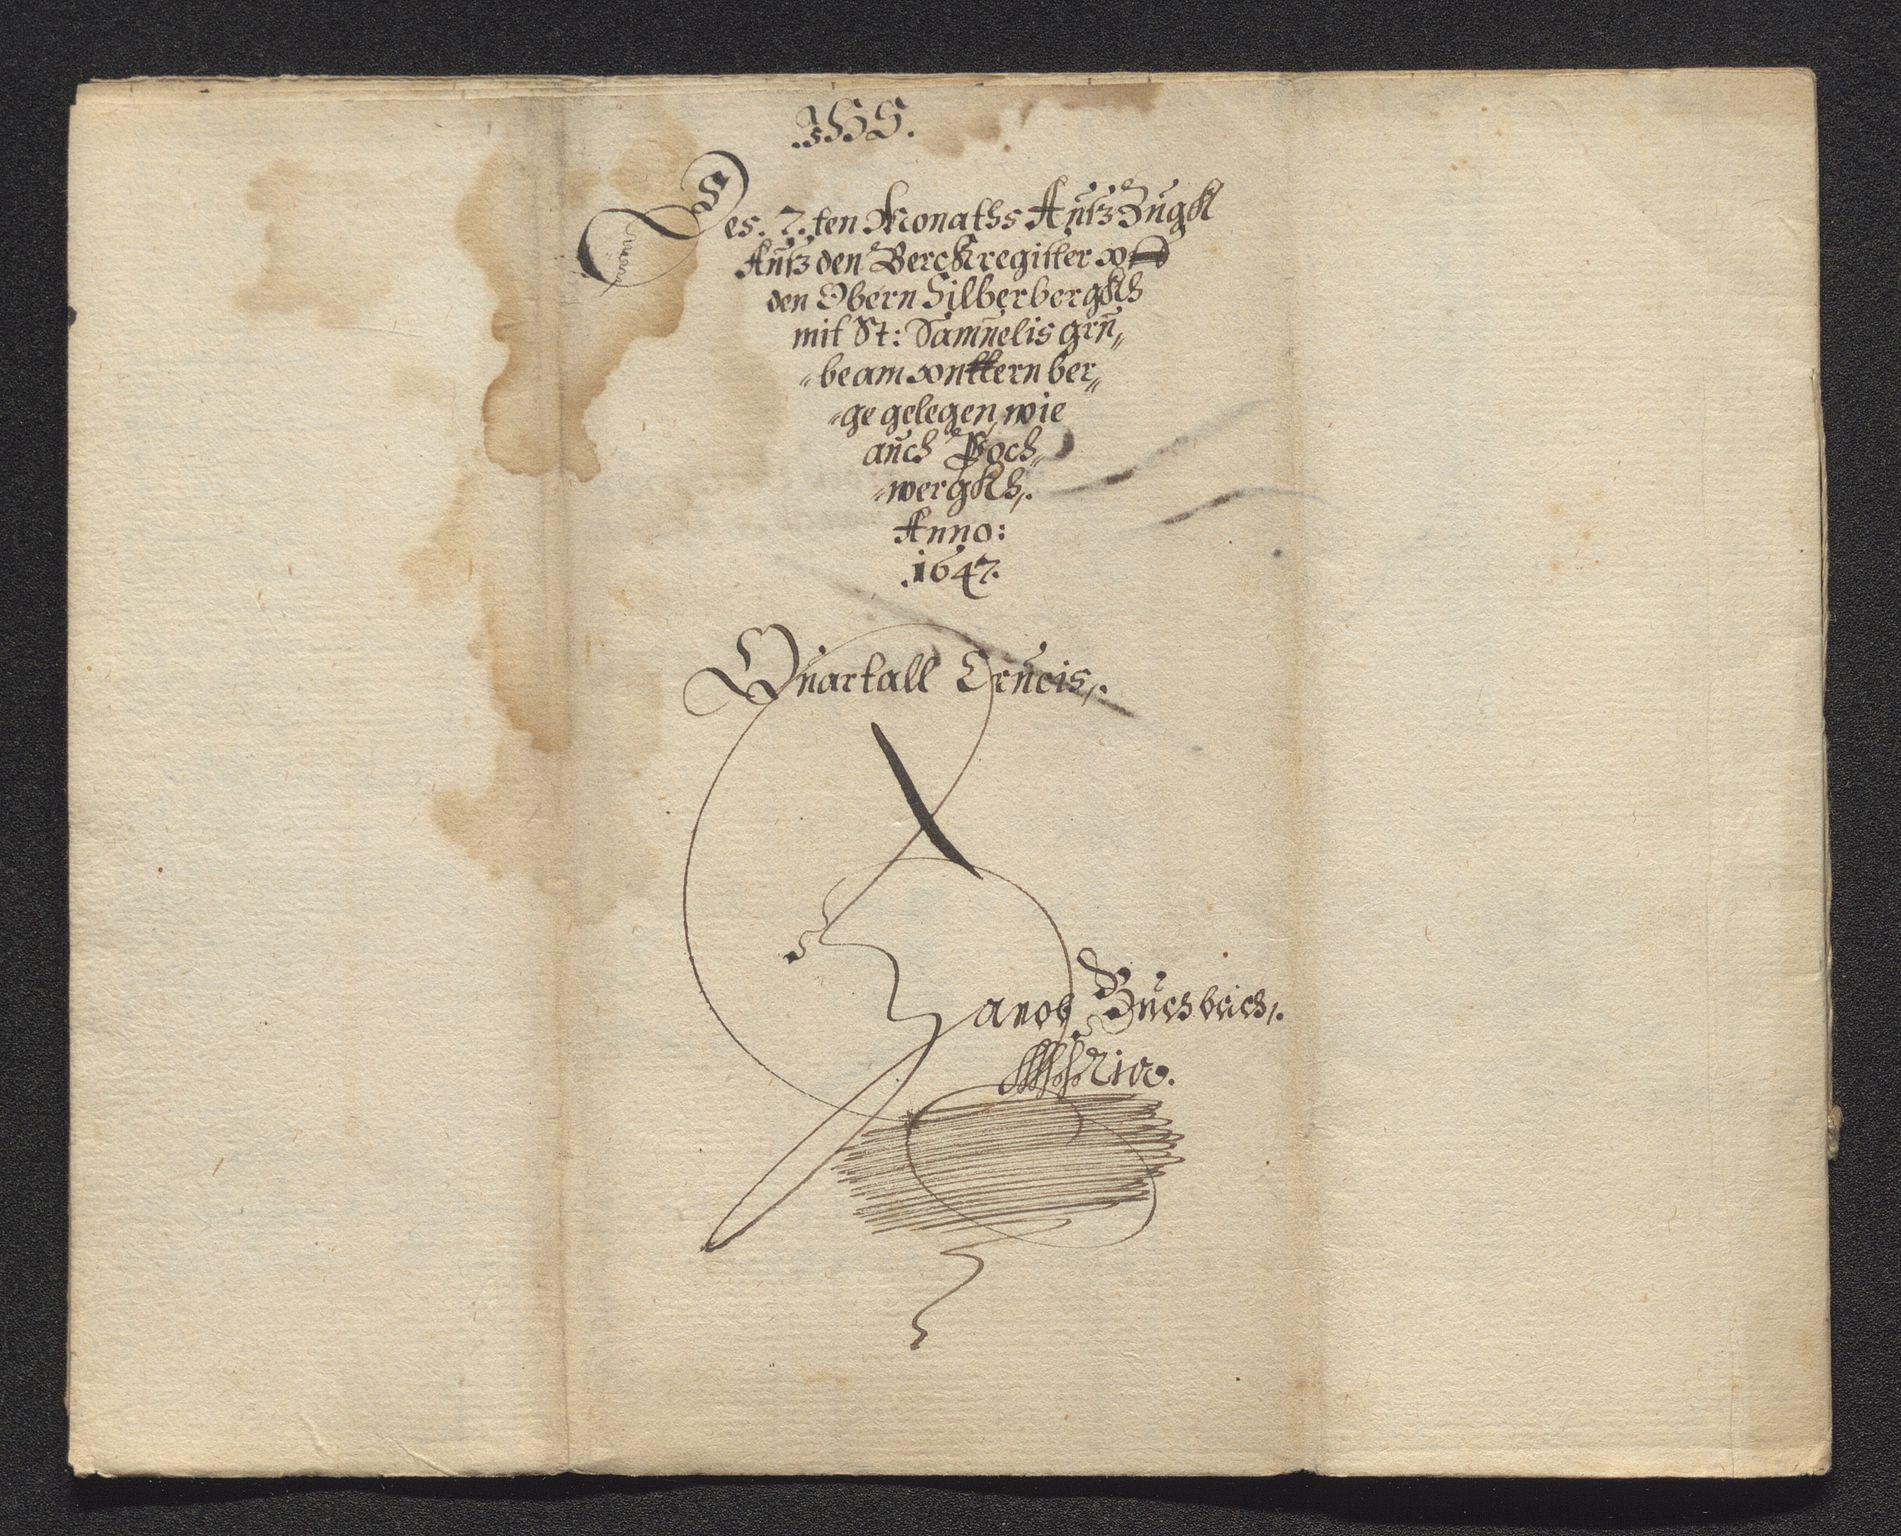 .JHS.
Des. 7. ten Monaths Außzugk
Auß den Berckregister von
den Obern Silberbergkh
mit St: Samuelis gru„
„be am vnttern ber„
„ge gelegen, wie
auch Poch„
„wergkh,.
Anno:
.1647.
Quartall Crucis,.
Buchbach,.